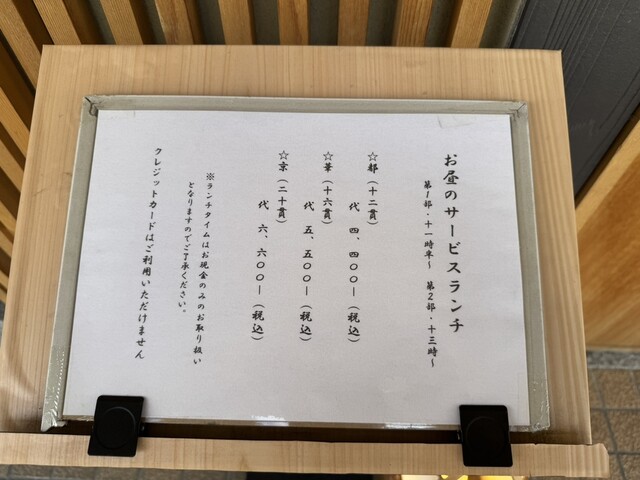 お昼のサービスランチ
第1部・十一時半〜 第2部・十三時〜
☆都(十二貫)
代 四、四〇〇ー(税込)
☆華(十六貫)
代 五、五〇〇ー(税込)
☆京(二十貫)
代 六、六〇〇ー(税込)
※ランチタイムはお現金のみのお取り扱い
となりますのでご了承ください。
クレジットカードはご利用いただけません